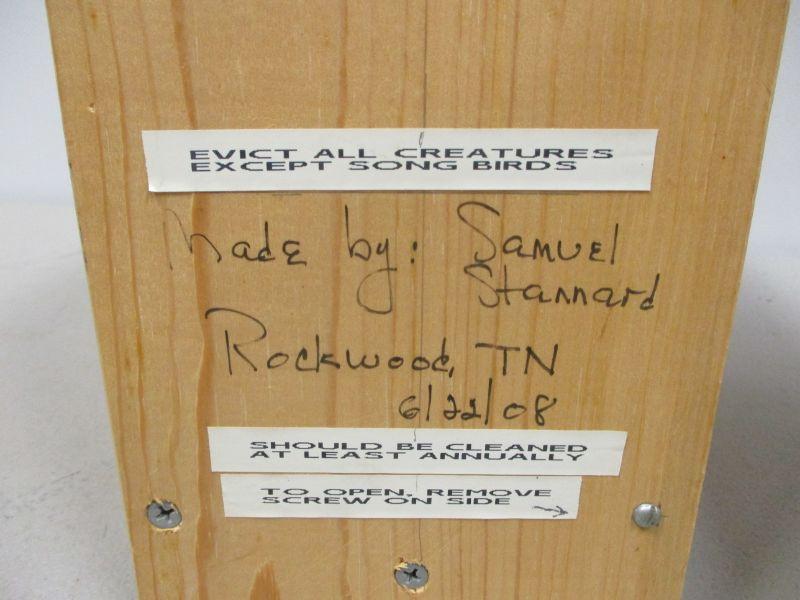 EVICT ALL CREATURES
EXCEPT SONG BIRDS
Made by: Samuel
Stannard
Rockwood, TN
6/22/08
SHOULD BE CLEANED
AT LEAST ANNUALLY
TO OPEN, REMOVE
SCREW ON SIDE